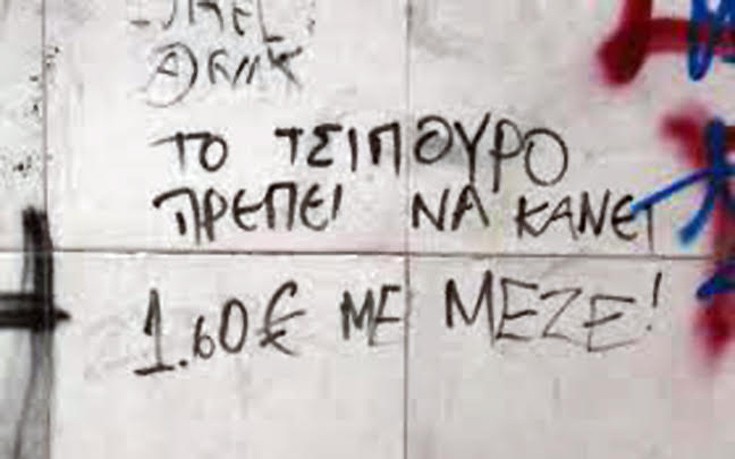 ΤΟ ΤΣΙΠΟΥΡΟ
ΠΡΕΠΕΙ ΝΑ ΚΑΝΕΙ
1.60€ ΜΕ ΜΕΖΕ!